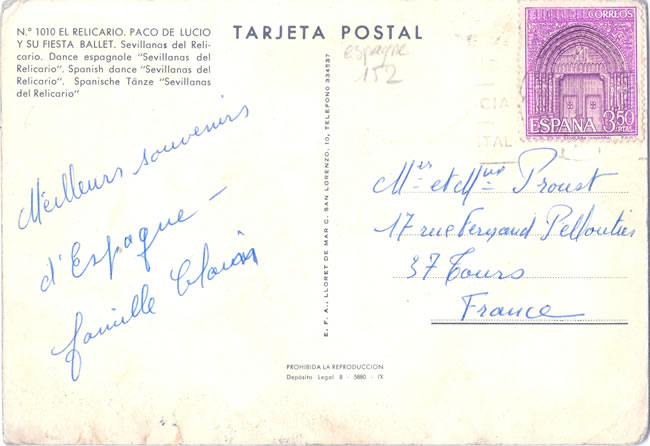 N.º 1010 EL RELICARIO. PACO DE LUCIO
Y SU FIESTA BALLET. Sevillanas del Reli-
cario. Dance espagnole "Sevillanas del
Relicario". Spanish dance "Sevillanas del
Relicario". Spanische Tänze "Sevillanas
del Relicario"
TARJETA POSTAL
espagne
152
CORREOS
ESPAÑA 3,50
PTAS
CIA
STAL
Meilleurs souvenirs
d'Espagne -
famille
E. F. A., LLORET DE MAR C. SAN LORENZO, 10, TELEFONO 334537
Mer et Mme Proust
17 rue Fernand Pelloutier
37 Tours
France
PROHIBIDA LA REPRODUCCION
Depósito Legal B - 5880 - IX